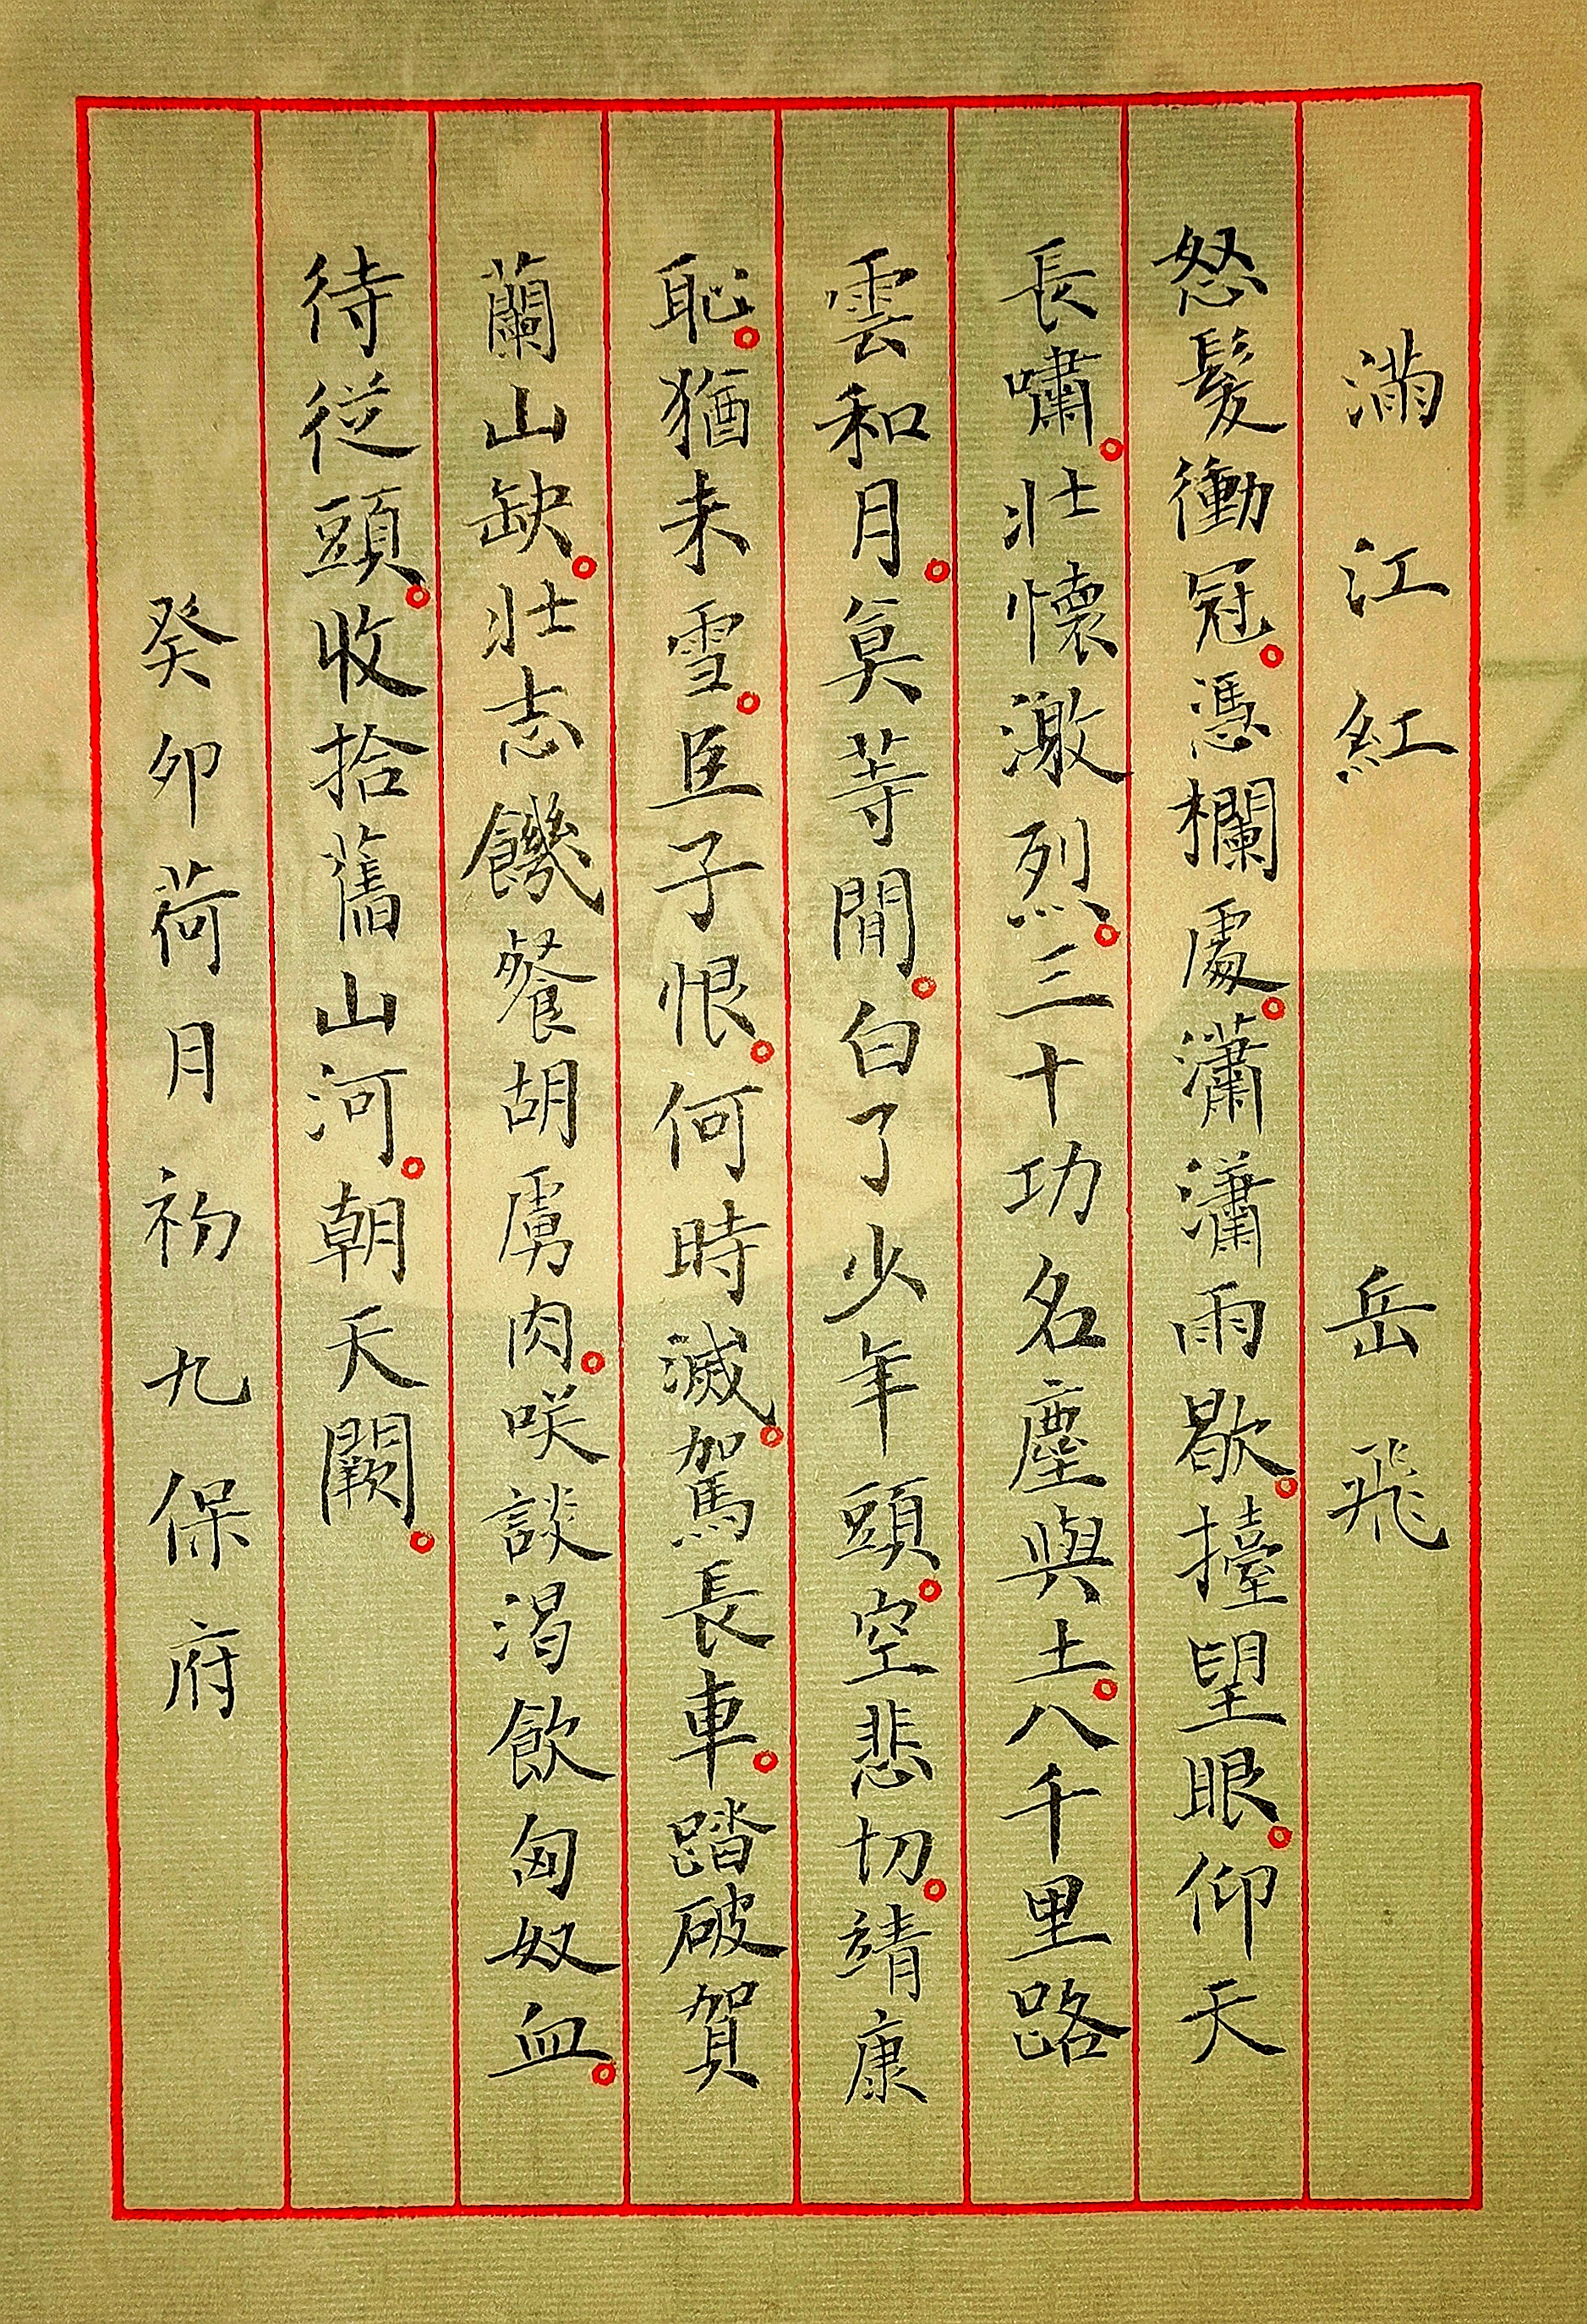 滿江紅 岳飛
怒髮衝冠。憑欄處。瀟瀟雨歇。擡望眼。仰天
長嘯。壯懷激烈。三十功名塵與土。八千里路
雲和月。莫等閒。白了少年頭。空悲切。靖康
恥。猶未雪。臣子恨。何時滅。駕長車。踏破賀
蘭山缺。壯志饑餐胡虜肉。咲談渴飲匈奴血。
待從頭。收拾舊山河。朝天闕。
癸卯荷月初九保府